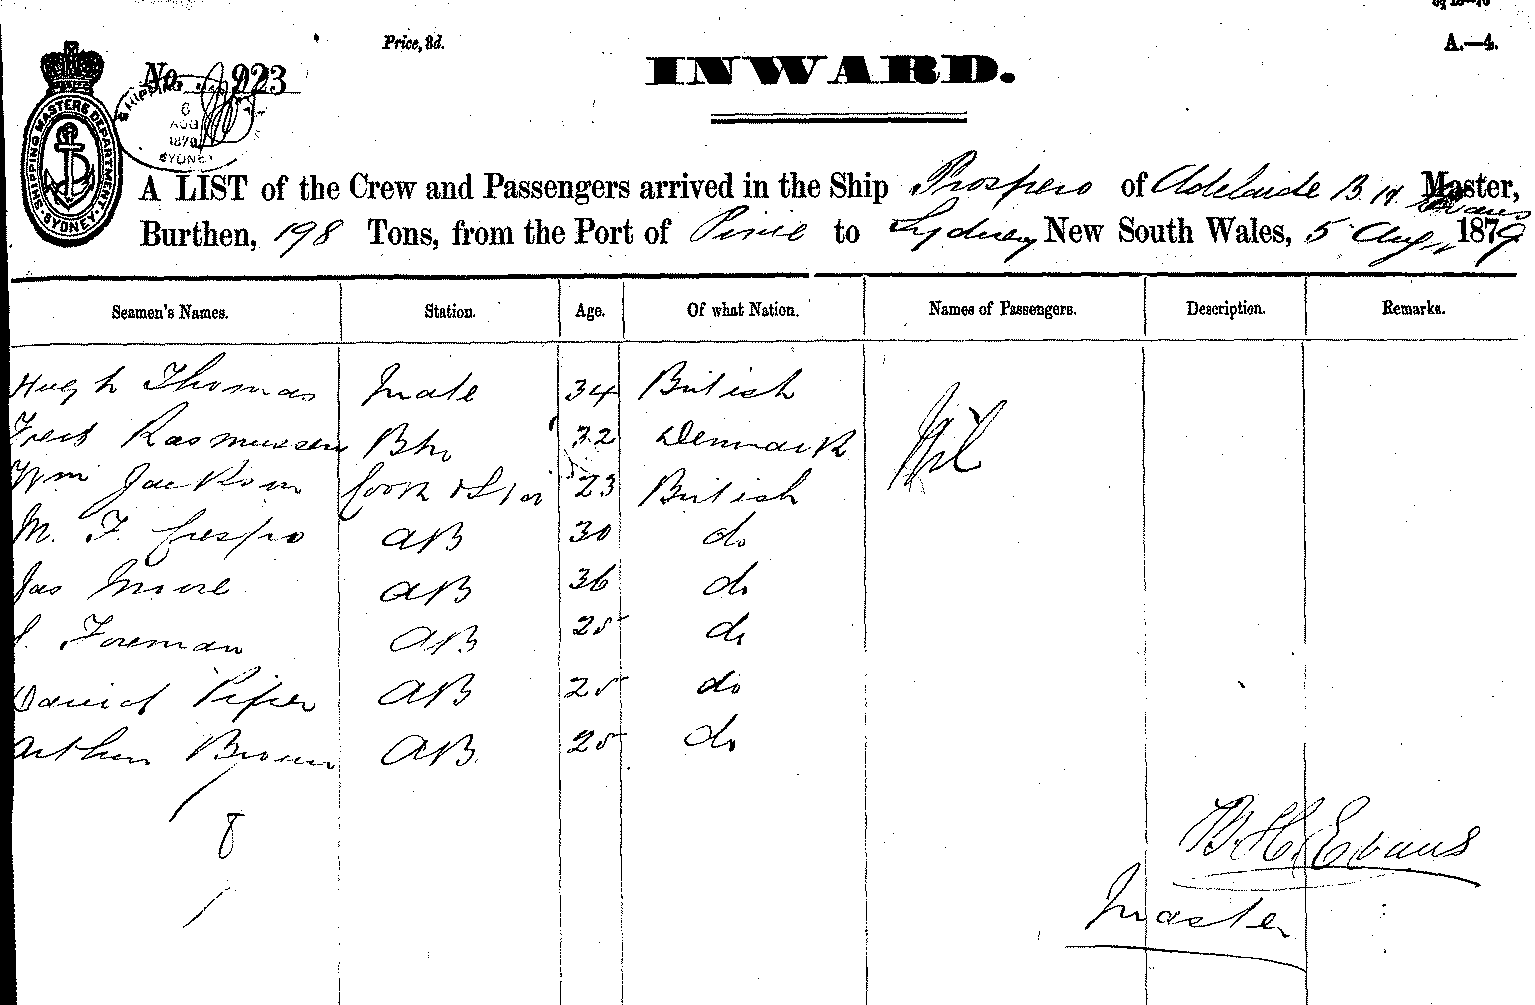 Price, 3d.
A.—4.
No. 923
INWARD.
SHIPPING MASTERS DEPARTMENT SYDNEY
SHIPPING
6
AUG
1879
SYDNEY
A LIST of the Crew and Passengers arrived in the Ship Prospero of Adelaide B. H. Evans Master,
Burthen, 198 Tons, from the Port of Pirie to Sydney New South Wales, 5 Aug 1879
Seamen's Names. Station. Age. Of what Nation. Names of Passengers. Description. Remarks.
Hugh Thomas Mate 34 British Nil
Fred Rasmussen 32 Denmark
Wm Jackson Cook & 23 British
M. F. Crespo AB 30 do
Jas Moore AB 36 do
Foreman AB 25 do
David Piper AB 25 do
Arthur Brown AB 25 do
8
B. H. Evans
Master